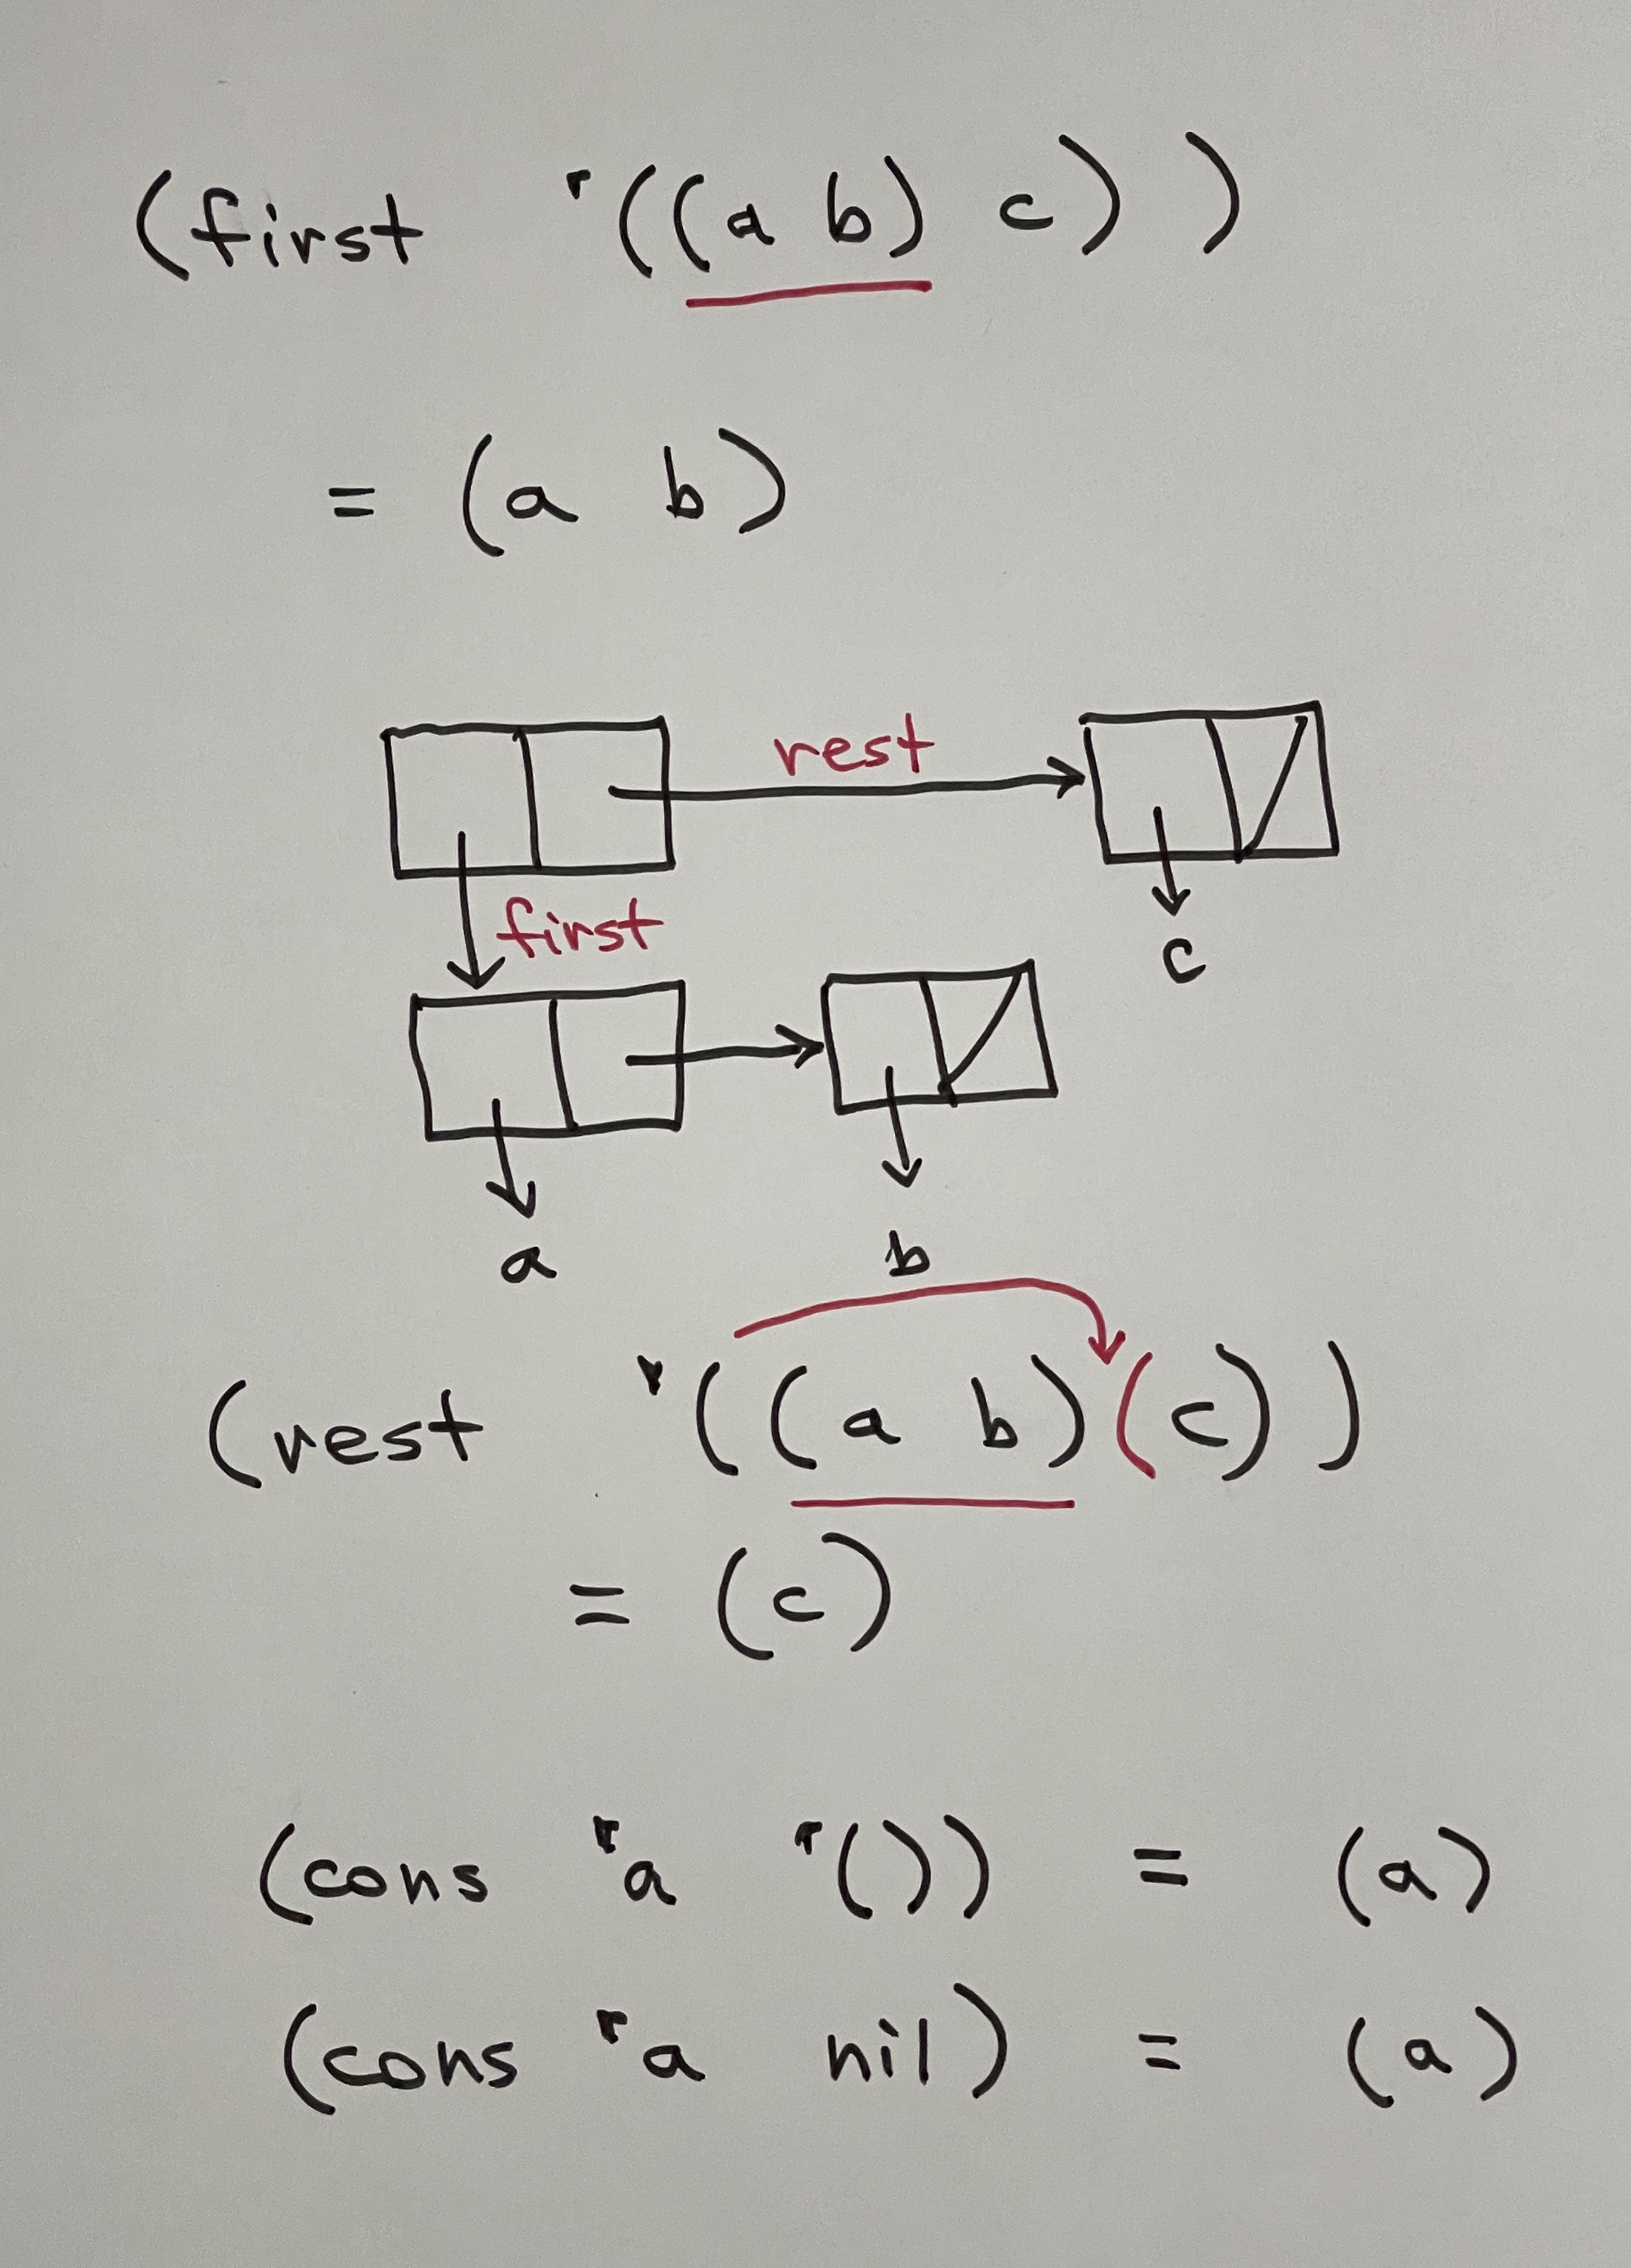 (first '((a b) c))
= (a b)
rest
first
c
a
b
(rest '((a b)(c))
= (c)
(cons 'a '()) = (a)
(cons 'a nil) = (a)